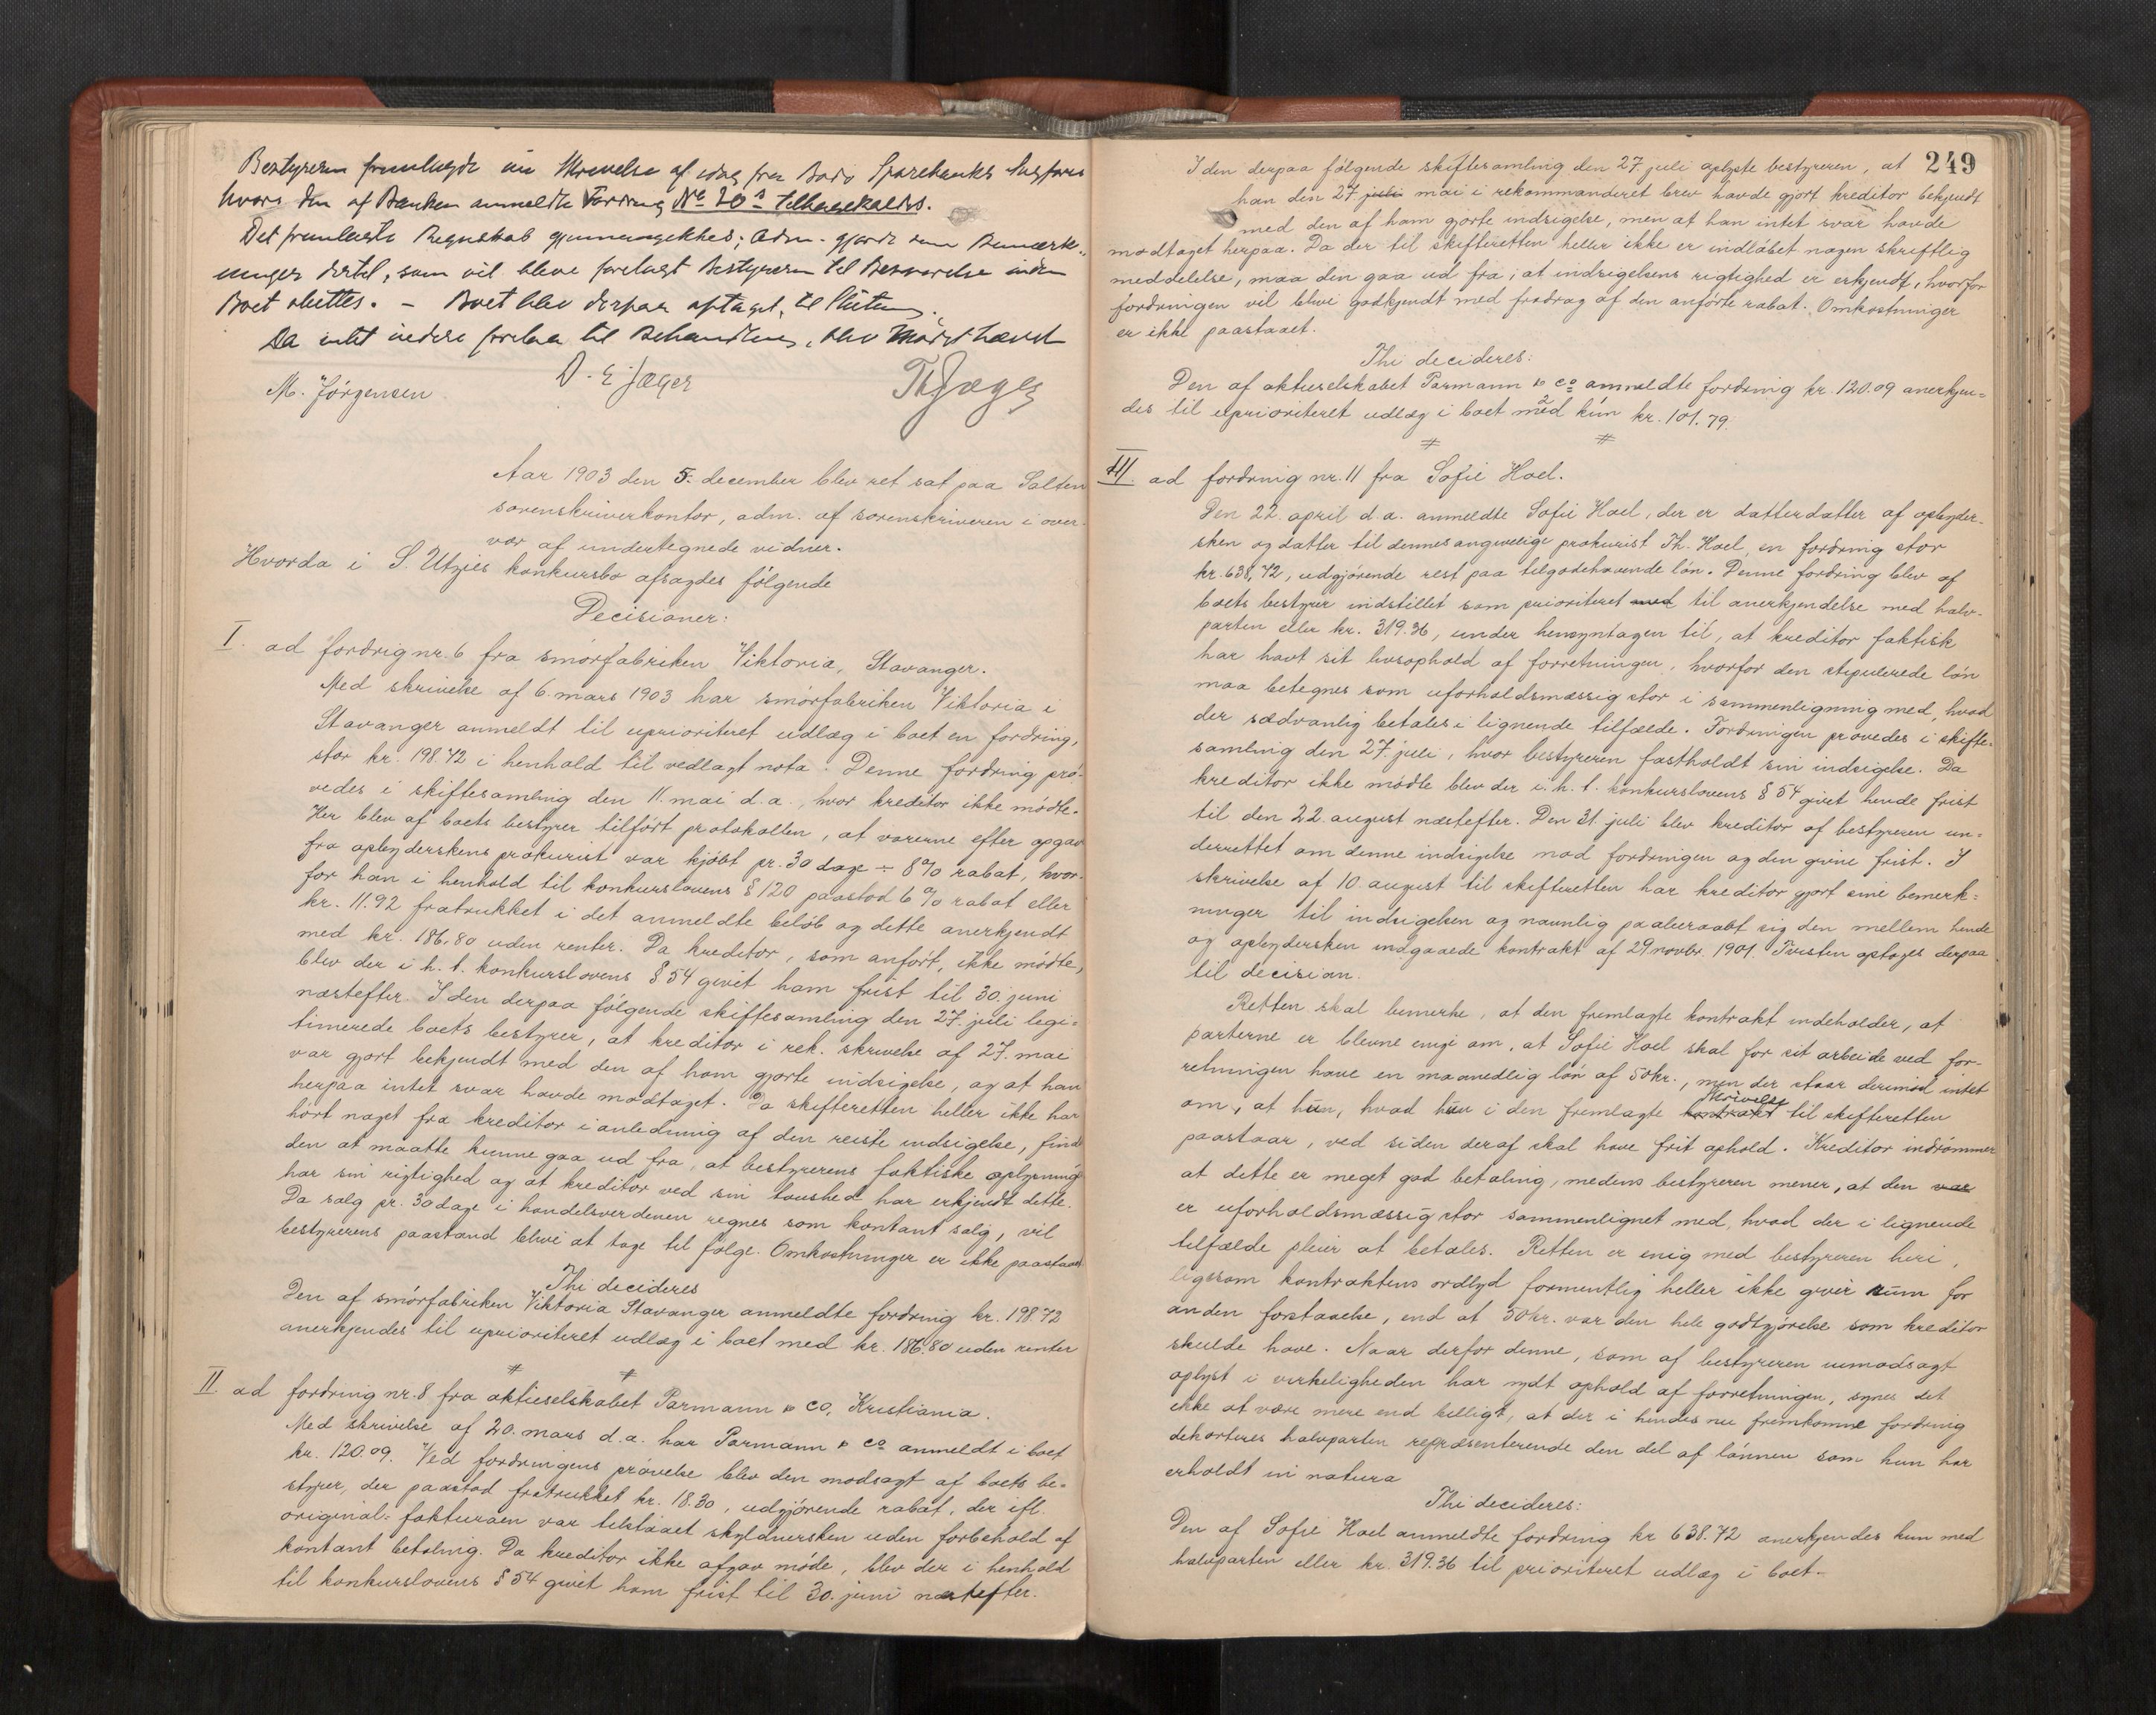 Bestyreren fremlagde en Skrivelse af idag fra Bodø Sparebanks Sagfører
hvori den af Banken anmeldte Fordring No 20 a tilbagekaldes.
Det fremlagte Regnskab gjennemgikkes; Adm. gjorde sine Bemærk-
ninger dertil, som vil blive forelagt Bestyreren til Besvarelse inden
Boet sluttes. – Boet blev derpaa optaget til Slutning.
Da intet videre forelaa til Behandling, blev Mødet hævet
M. Jörgensen D. E. Jæger Th Jæger
Aar 1903 den 5. december blev ret sat paa Salten
sorenskriverkontor, adm. af sorenskriveren i over-
vær af undertegnede vidner.
Hvorda i S. Utzies konkursbo afsagdes fölgende
Decisioner:
I. ad fordrig nr. 6 fra smörfabriken Viktoria, Stavanger.
Med skrivelse af 6. mars 1903 har smörfabriken Viktoria i
Stavanger anmeldt til uprioriteret udlæg i boet en fordring,
stor kr. 198.72 i henhold til vedlagt nota. Denne fordring prö-
vedes i skiftesamling den 11. mai d.a., hvor kreditor ikke mödte.
Her blev af boets bestyrer tilfört protokollen, at varerne efter opgav
fra opbyderskens prokurist var kjöbt pr. 30 dage ÷ 8% rabat, hvor-
for han i henhold til konkurslovens § 120 paastod 6 % rabat eller
kr. 11.92 fratrukket i det anmeldte belöb og dette anerkjendt
med kr. 186.80 uden renter. Da kreditor, som anfört, ikke mödte,
blev der i h. t. konkurslovens § 54 givet ham frist til 30. juni
næstefter. I den derpaa fölgende skiftesamling den 27. juli legi-
timerede boets bestyrer, at kreditor i rek. skrivelse af 27. mai
var gjort bekjendt med den af ham gjorte indsigelse, og at han
herpaa intet svar havde modtaget. Da skifteretten heller ikke har
hört noget fra kreditor i anledning af den reiste indsigelse, find
den at maatte kunne gaa ud fra, at bestyrerens faktiske oplysning
har sin rigtighed og at kreditor ved sin taushed har erkjendt dette.
Da salg pr. 30 dage i handelsverdenen regnes som kontant salg, vil
bestyrerens paastand blive at tage til fölge. Omkostninger er ikke paastaaet
Thi decideres
Den af smörfabriken Viktoria Stavanger anmeldte fordring kr. 198.72
anerkjendes til uprioriteret udlæg i boet med kr. 186.80 uden renter
# #
II ad fordring nr. 8 fra aktieselskabet Parmann & co, Kristiania.
Med skrivelse af 20. mars d.a. har Parmann & co anmeldt i boet
kr. 120.09. Ved fordringens prövelse blev den modsagt af boets be-
styrer, der paastod fratrukket kr. 18.30, udgjörende rabat, der ifl.
original-fakturaen var tilstaaet skyldnersken uden forbehold af
kontant betaling. Da kreditor ikke afgav möde, blev der i henhold
til konkurslovens § 54 givet ham frist til 30. juni næstefter.
249
I den derpaa fölgende skiftesamling den 27. juli oplyste bestyreren, at
han den 27. juli mai i rekommanderet brev havde gjort kreditor bekjendt
med den af ham gjorte indsigelse, men at han intet svar havde
modtaget herpaa. Da der til skifteretten heller ikke er indlöbet nogen skriftlig
meddelelse, maa den gaa ud fra, at indsigelsens rigtighed er erkjendt, hvorfor
fordringen vil blive godkjendt med fradrag af den anförte rabat. Omkostninger
er ikke paastaaet.
Thi decideres:
Den af aktieselskabet Parmann & co anmeldte fordring kr. 120.09 anerkjen-
des til uprioriteret udlæg i boet med kun kr. 101.79.
# #
III. ad fordring nr. 11 fra Sofie Hoel.
Den 22. april d.a. anmeldte Sofie Hoel, der er datterdatter af opbyder-
sken og datter til dennes angivelige prokurist Th. Hoel, en fordring stor
kr. 638,72, udgjörende rest paa tilgodehavende lön. Denne fordring blev af
boets bestyrer indstillet som prioriteret med til anerkjendelse med halv-
parten eller kr. 319.36, under hensyntagen til, at kreditor faktisk
har havt sit livsophold af forretningen, hvorfor den stipulerede lön
maa betegnes som uforholdsmæssig stor i sammenligning med, hvad
der sædvanlig betales i lignende tilfælde. Fordringen prövedes i skifte-
samling den 27. juli, hvor bestyreren fastholdt sin indsigelse. Da
kreditor ikke mödte blev der i. h. t. konkurslovens § 54 givet hende frist
til den 22. august næstefter. Den 31. juli blev kreditor af bestyreren un-
derrettet om denne indsigelse mod fordringen og den givne frist. I
skrivelse af 10. august til skifteretten har kreditor gjort sine bemerk-
ninger til indsigelsen og navnlig paaberaabt sig den mellem hende
og opbydersken indgaaede kontrakt af 29 novbr. 1901. Tvisten optoges derpaa
til decision.
Retten skal bemerke, at den fremlagte kontrakt indeholder, at
parterne er blevne enige om, at Sofie Hoel skal for sit arbeide ved for-
retningen have en maanedlig lön af 50 kr., men der staar derimod intet
om, at hun, hvad hun i den fremlagte kontrakt skrivelse til skifteretten
paastaar, ved siden deraf skal have frit ophold. Kreditor indrömmer
at dette er meget god betaling, medens bestyreren mener, at den var
er uforholdsmæssig stor sammenlignet med, hvad der i lignende
tilfælde pleier at betales. Retten er enig med bestyreren heri,
ligesom kontraktens ordlyd formentlig heller ikke giver rum for
anden forstaaelse, end at 50 kr. var den hele godtgjörelse som kreditor
skulde have. Naar derfor denne, som af bestyreren uimodsagt
oplyst i virkeligheden har nydt ophold af forretningen, synes det
ikke at være mere end billigt, at der i hendes nu fremkomne fordring
dekorteres halvparten repræsenterende den del af lönnen som hun har
erholdt in natura
Thi decideres:
Den af Sofie Hoel anmeldte fordring kr 638.72 anerkjendes kun med
halvparten eller kr. 319.36 til prioriteret udlæg i boet.